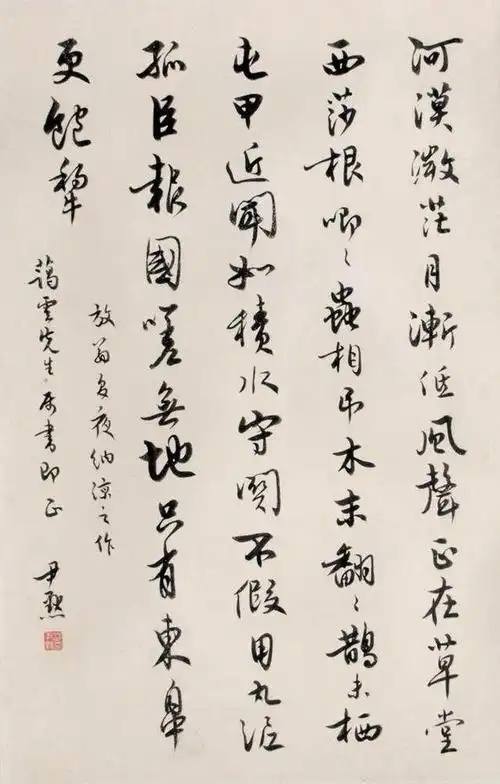 河漢微茫月漸低風聲正在草堂
西莎根唧〻蟲相弔木末翻〻鵲未栖
屯甲近聞如積水守關不假用丸泥
孤臣報國嗟無地只有東皋
更飽犂
放翁夏夜納涼之作
藹雲先生屬書即正 尹默